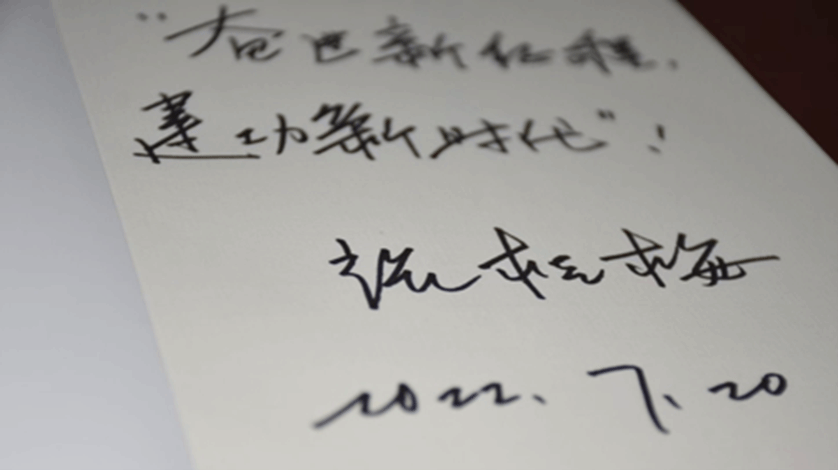 “奋进新征程，
建功新时代”！
张桂梅
2022.7.20